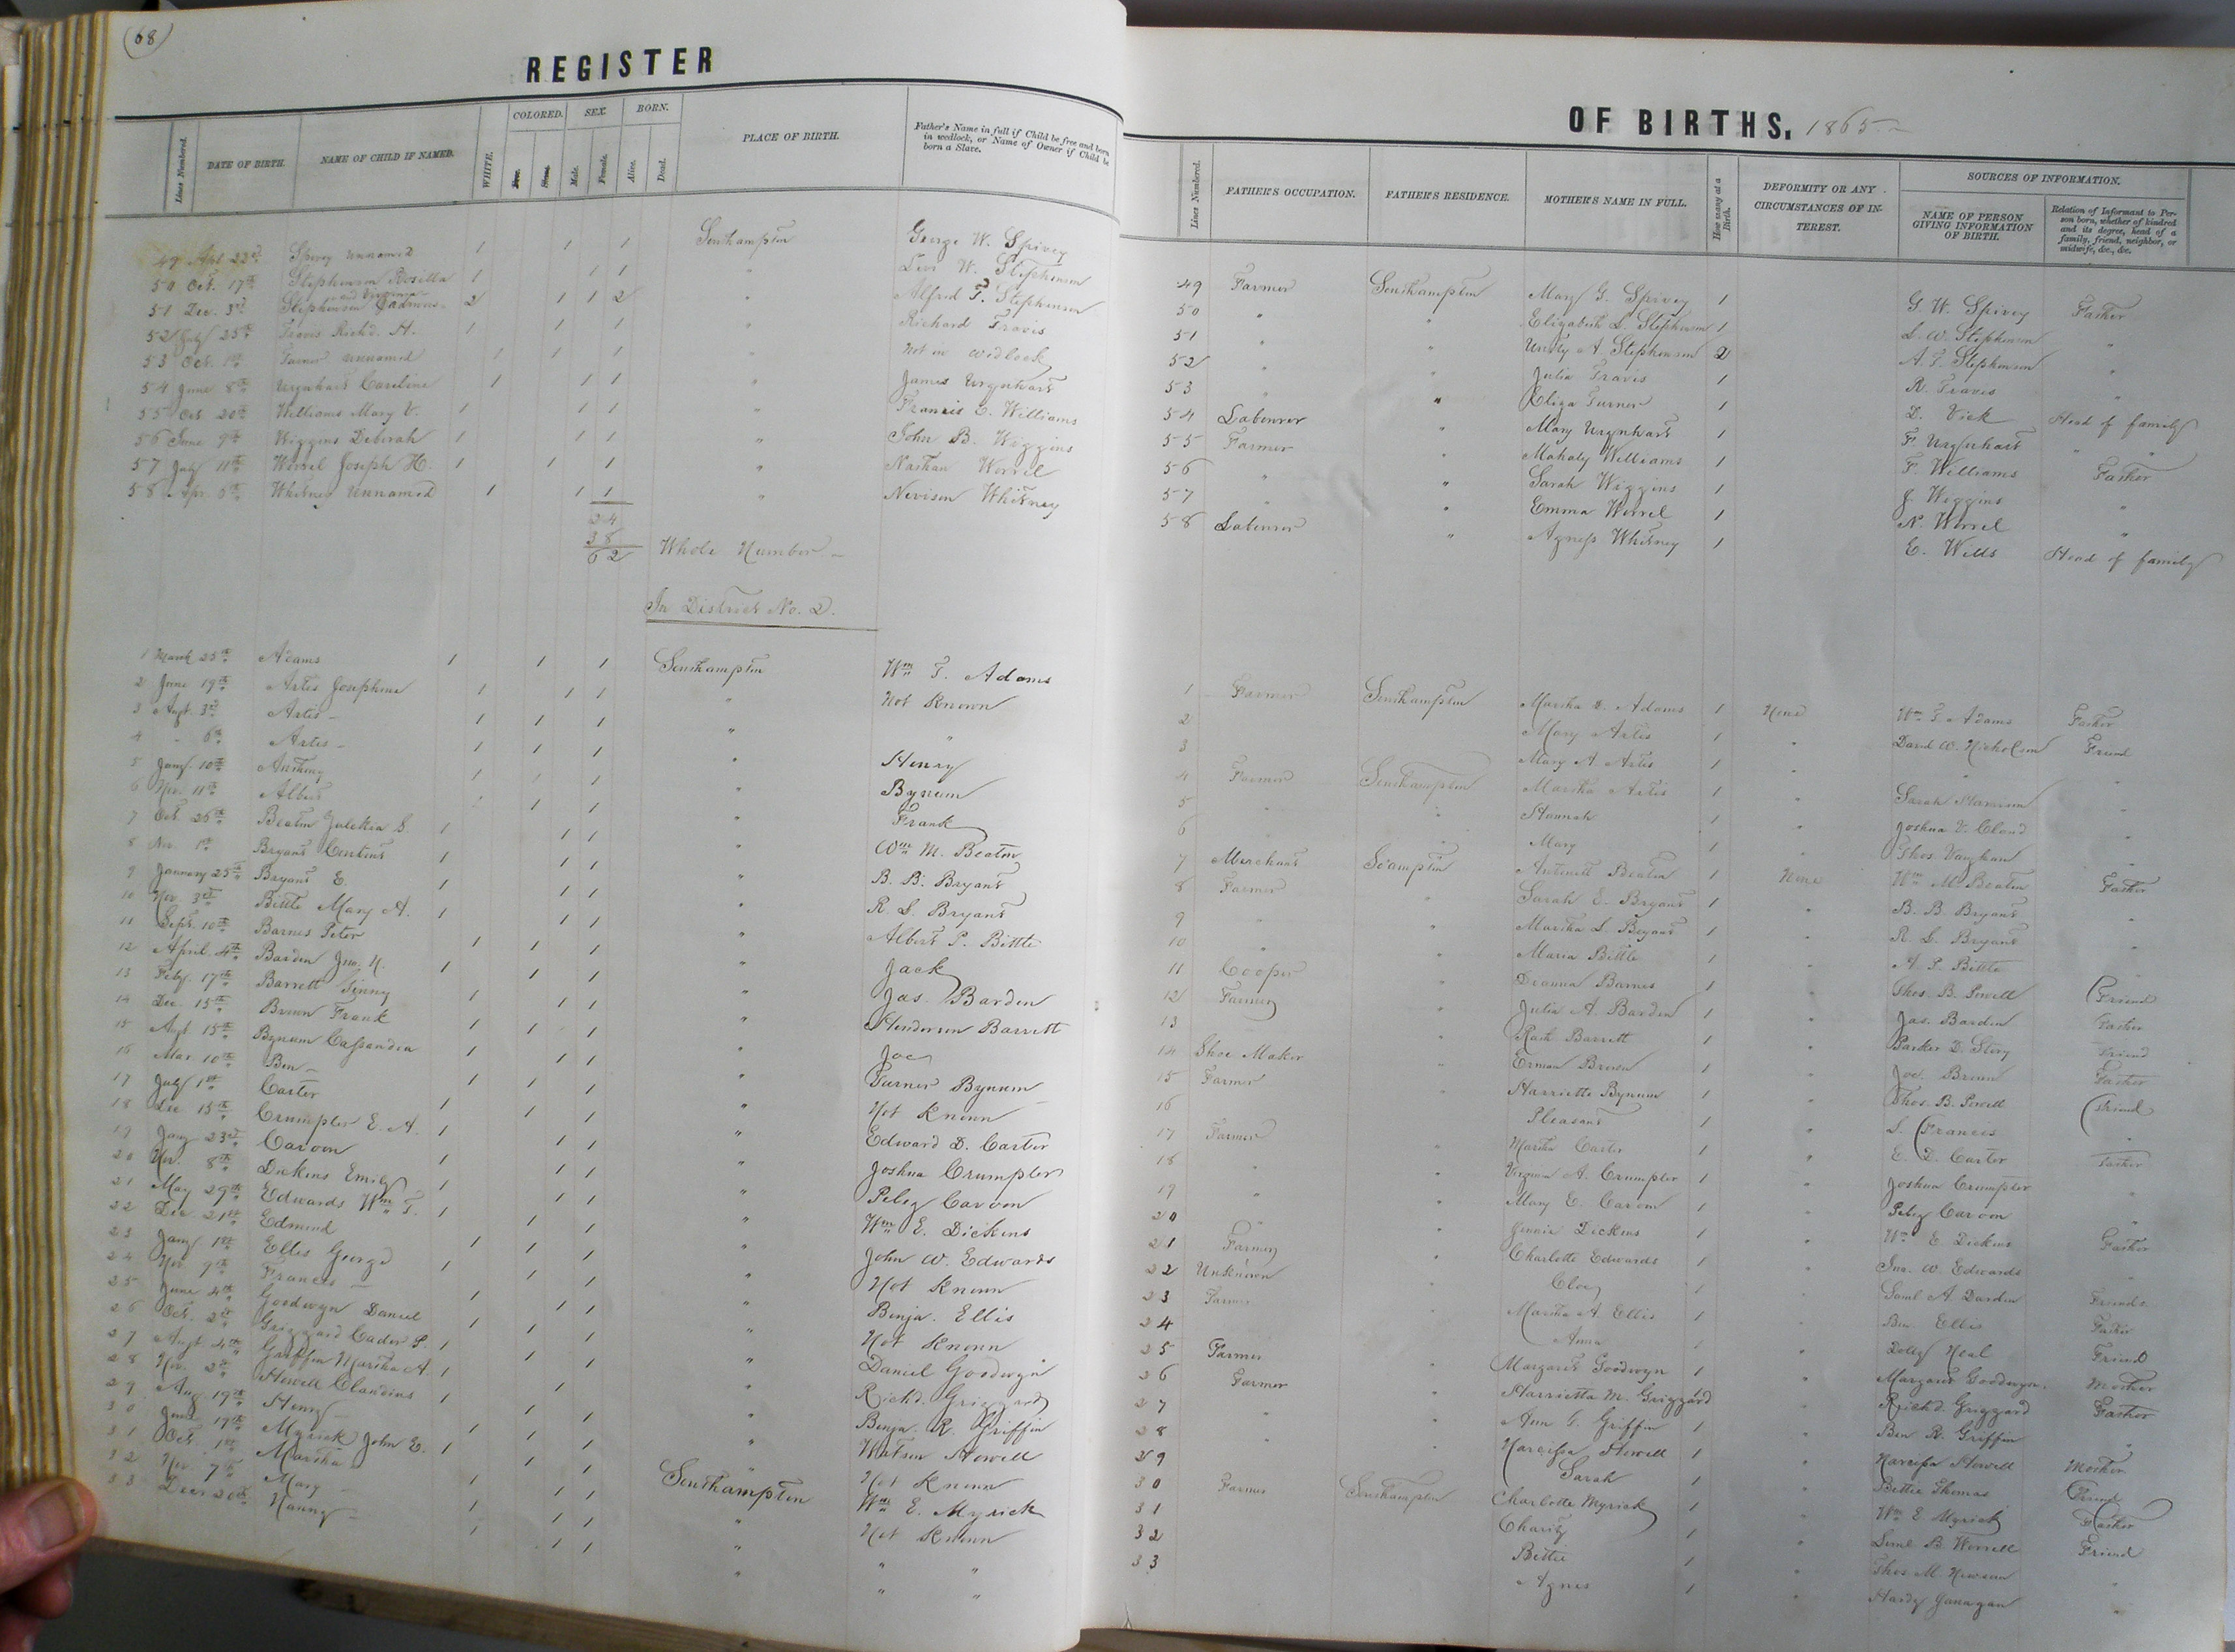 68
REGISTER
Lines Numbered.
DATE OF BIRTH.
NAME OF CHILD IF NAMED.
WHITE.
COLORED.
Free.
Slave.
SEX.
Male.
Female.
BORN.
Alive.
Dead.
PLACE OF BIRTH.
Father's Name in full if Child be free and born in wedlock, or Name of Owner if Child be born a Slave.
49 Apl 23d Spivey unnamed 1 1 1 Southampton George W. Spivey
50 Oct. 17th Stephenson Rosilla 1 1 1 " Levi W. Stephenson
51 Dec. 3d Stephenson 2 1 1 2 " Alfred T. Stephenson
52 July 25th Travis Richd. A. 1 1 1 " Richard Travis
53 Oct. 1st Turner unnamed 1 1 1 " Not in wedlock
54 June 8th Urquhart Caroline 1 1 1 " James Urquhart
55 Oct 20th Williams Mary V. 1 1 1 " Francis E. Williams
56 June 9th Wiggins Deborah 1 1 1 " John B. Wiggins
57 July 11th Worrel Joseph H. 1 1 1 " Nathan Worrel
58 Apr. Whitney Unnamed 1 1 1 " Nevison Whitney
24
38
62 Whole Number -
In District No. 2.
1 March 25th Adams 1 1 1 Southampton Wm T. Adams
2 June 19th Artis Josephine 1 1 1 " Not Known
3 Augt. 3d Artis - 1 1 1 " "
4 " 6th Artis - 1 1 1 " Henry
5 Jany. 10th Anthony 1 1 1 " Bynum
6 Nov. 11th Albert 1 1 " Frank
7 Oct. 25th Beaton Julettia S. 1 1 1 " Wm M. Beaton
8 Nov. 1st Bryant 1 1 1 " B. B. Bryant
9 January 25th Bryant E. 1 1 1 " R. S. Bryant
10 Nov. 3d Bittle Mary A. 1 1 1 " Albert P. Bittle
11 Sept. 10th Barnes Peter 1 1 1 " Jack
12 April 4th Barden Jno. 1 1 1 " Jas. Barden
13 Feby. 17th Barrett Ginny 1 1 1 " Henderson Barrett
14 Dec. 15th Brown Frank 1 1 1 " Joe
15 Augt 15th Bynum Cassandra 1 1 1 " Turner Bynum
16 Mar 10th Ben - 1 1 1 " Not Known
17 July 1st Carter 1 1 1 " Edward D. Carter
18 Dec 15th Crumpler E. A. 1 1 1 " Joshua Crumpler
19 Jany 23d 1 1 1 " Peleg
20 Nov. 8th Dickens Emily 1 1 1 " Wm E. Dickens
21 May 29th Edwards Wm T. 1 1 1 " John W. Edwards
22 Dec 21st Edmund 1 1 1 " Not Known
23 Jany 1st Ellis George 1 1 1 " Benja. Ellis
24 Nov. 9th Frances - 1 1 1 " Not Known
25 June 4th Goodwyn Daniel 1 1 1 " Daniel Goodwyn
26 Oct. 2d Grizzard Cader 1 1 1 " Richd. Grizzard
27 Augt. 4th Griffin Martha A. 1 1 1 " Benja. R. Griffin
28 Nov. 2d Howell Claudius 1 1 1 " Watson Howell
29 Aug 19th Henry - 1 1 1 Southampton Not Known
30 June 19th Myrick John E. 1 1 1 " Wm E. Myrick
31 Oct. 1st Martha 1 1 1 " Not Known
32 Nov. 7th Mary - 1 1 1 " " "
33 Decr 20th Nanny - 1 1 1 " " "
OF BIRTHS, 1865 -
Lines Numbered.
FATHER'S OCCUPATION.
FATHER'S RESIDENCE.
MOTHER'S NAME IN FULL.
How many at a Birth.
DEFORMITY OR ANY CIRCUMSTANCES OF INTEREST.
SOURCES OF INFORMATION.
NAME OF PERSON GIVING INFORMATION OF BIRTH.
Relation of Informant to Person born, whether of kindred and its degree, head of a family, friend, neighbor, or midwife, &c., &c.
49 Farmer Southampton Mary G. Spivey 1 G. W. Spivey Father
50 " " Elizabeth L. Stephenson 1 L. W. Stephenson "
51 " " A. Stephenson 2 A. T. Stephenson "
52 " " Julia Travis 1 R. Travis "
53 " " Eliza Turner 1 D. Vick Head of family
54 Labourer " Mary Urquhart 1 F. Urquhart " "
55 Farmer " Mahaly Williams 1 F. Williams Father
56 " " Sarah Wiggins 1 J. Wiggins "
57 " " Emma Worrel 1 N. Worrel "
58 Labourer " Agness Whitney 1 E. Wills Head of family
1 Farmer Southampton Martha E. Adams 1 None Wm T. Adams Father
2 Mary Artis 1 " David W. Nicholson Friend
3 Mary A. Artis 1 " " "
4 Farmer Southampton Martha Artis 1 " Sarah Harrison "
5 " " Hannah 1 " Joshua E. Cloud "
6 " " Mary 1 " Thos. Vaughan "
7 Merchant Soampton Antonett Beaton 1 None Wm M. Beaton Father
8 Farmer " Sarah E. Bryant 1 " B. B. Bryant "
9 " " Martha L. Bryant 1 " R. S. Bryant "
10 " " Maria Bittle 1 " A. P. Bittle "
11 Cooper " Deanna Barnes 1 " Thos. B. Sewell Friend
12 Farmer " Julia A. Barden 1 " Jas. Barden Father
13 " Ruth Barrett 1 " Parker D. Story Friend
14 Shoe Maker " Brown 1 " Joe. Brown Father
15 Farmer Harriette Bynum 1 " Thos. B. Sewell Friend
16 Pleasant 1 " S. Francis "
17 Farmer " Martha Carter 1 " E. D. Carter Father
18 " " Virginia A. Crumpler 1 " Joshua Crumpler "
19 " " Mary E. 1 " Peleg "
20 " " Dickens 1 " Wm E. Dickens Father
21 Farmer " Charlotte Edwards 1 " Jno. W. Edwards "
22 Unknown " Cloey 1 " Saml. A. Darden Friend
23 Farmer " Martha A. Ellis 1 " Ben. Ellis Father
24 Anna 1 " Dolly Neal Friend
25 Farmer " Margaret Goodwyn 1 " Margaret Goodwyn. Mother
26 Farmer " Harrietta M. Grizzard 1 " Richd. Grizzard Father
27 " " Ann G. Griffin 1 " Ben R. Griffin "
28 " " Narcissa Howell 1 " Narcissa Howell Mother
29 Sarah 1 " Bettie Thomas Friend
30 Farmer Southampton Charlotte Myrick 1 " Wm E. Myrick Father
31 Charity 1 " Saml B. Worrell Friend
32 Bettie 1 " Thos. M. Newsom "
33 Agnes 1 " Hardy "